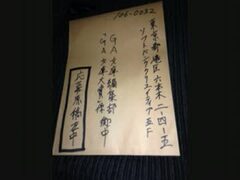 106-0032
東京都港区六本木二-四-五
ソフトバンククリエイティブ五F
GA文庫編集部 御中
「GA文庫大賞」係
応募原稿在中